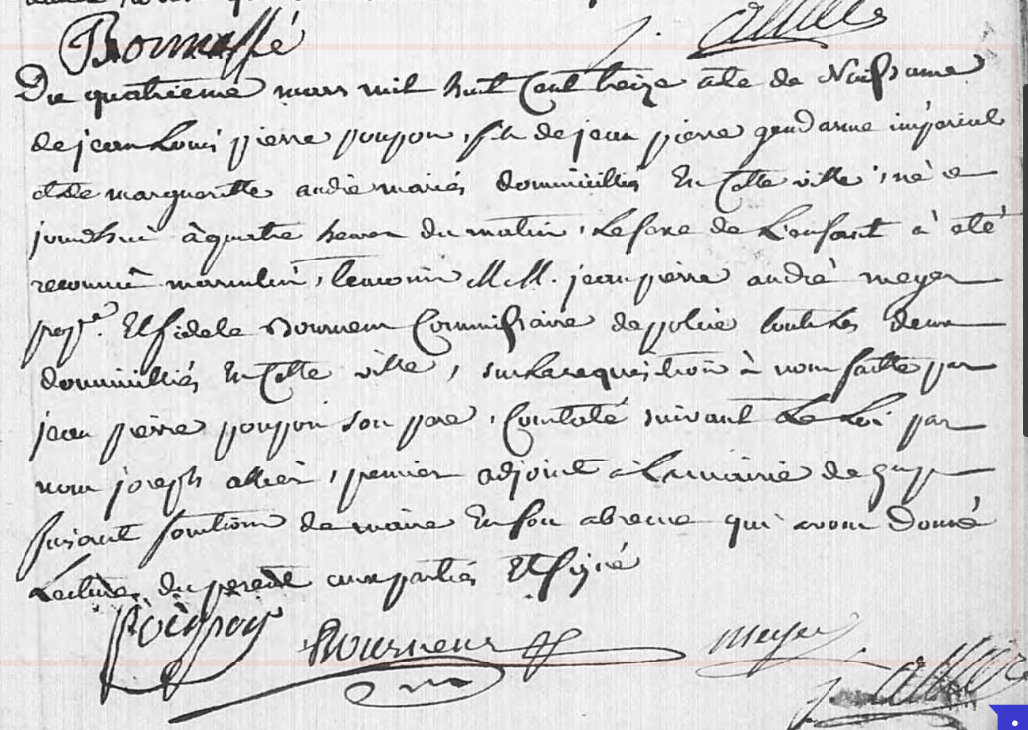 Bonnaffé
J. Allier
Du quatrieme mars mil huit Cent treize acte de Naissance
de jean Louis pierre poupon, fils de jean pierre gendarme impérial
et de margueritte andré mariés domiciilliés En Cette ville, né ce
jourdhui à quatre heures du matin, Le sexe de L'enfant à été
reconnû masculin, temoins MM. jean pierre andré meyer
Et fidele Bourneur Commissaire de police touts les deux
domicilliés En Cette ville, sur La requisition à nous faitte par
jean pierre poupon son pere, Constaté suivant La Loi par
nous joseph allier, premier adjoint à La mairie de gap
faisant fonctions de maire En son absence qui avons donné
Lecture du present aux parties Et signé
Poupon Bourneur meyer
J. Allier